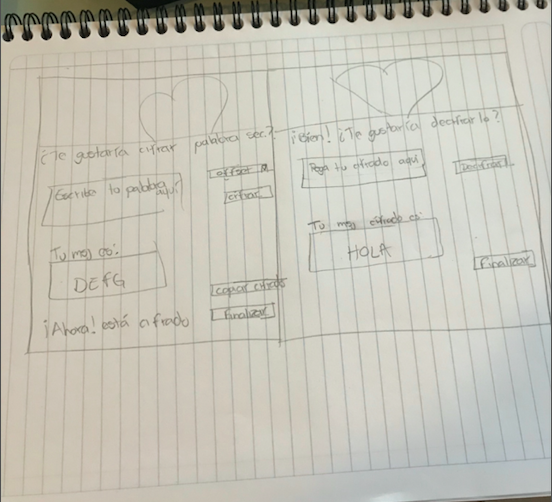 ¿Te gustaría cifrar palabra sec?
offset
Escribe tu palabra aquí
cifrar
Tu msj es:
DEFG
copiar cifrado
¡Ahora! está cifrado
Finalizar
¡Bien! ¿Te gustaría decifrarlo?
Pega tu cifrado aquí
Decifrar
Tu msj cifrado es:
HOLA
Finalizar